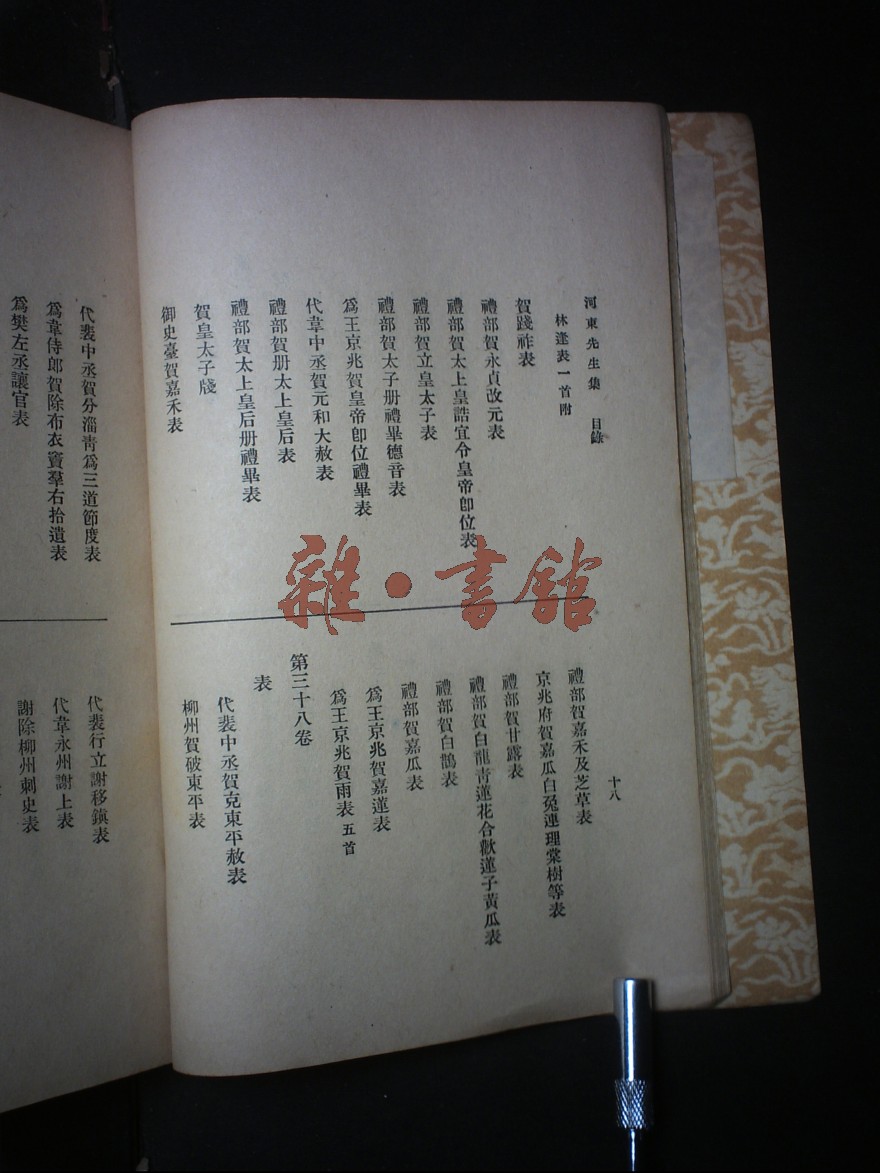 河東先生集 目錄
林逢表一首附
賀踐祚表
禮部賀永貞改元表
禮部賀太上皇誥宜令皇帝卽位表
禮部賀立皇太子表
禮部賀太子册禮畢德音表
爲王京兆賀皇帝卽位禮畢表
代韋中丞賀元和大赦表
禮部賀册太上皇后表
禮部賀太上皇后册禮畢表
賀皇太子牋
御史臺賀嘉禾表
十八
禮部賀嘉禾及芝草表
京兆府賀嘉瓜白兔連理棠樹等表
禮部賀甘露表
禮部賀白龍青蓮花合歡蓮子黃瓜表
禮部賀白鵲表
禮部賀嘉瓜表
爲王京兆賀嘉蓮表
爲王京兆賀雨表 五首
第三十八卷
表
代裴中丞賀克東平赦表
柳州賀破東平表
代裴中丞賀分淄青爲三道節度表
爲韋侍郎賀除布衣竇羣右拾遺表
爲樊左丞讓官表
代裴行立謝移鎮表
代韋永州謝上表
謝除柳州刺史表
雜·書館